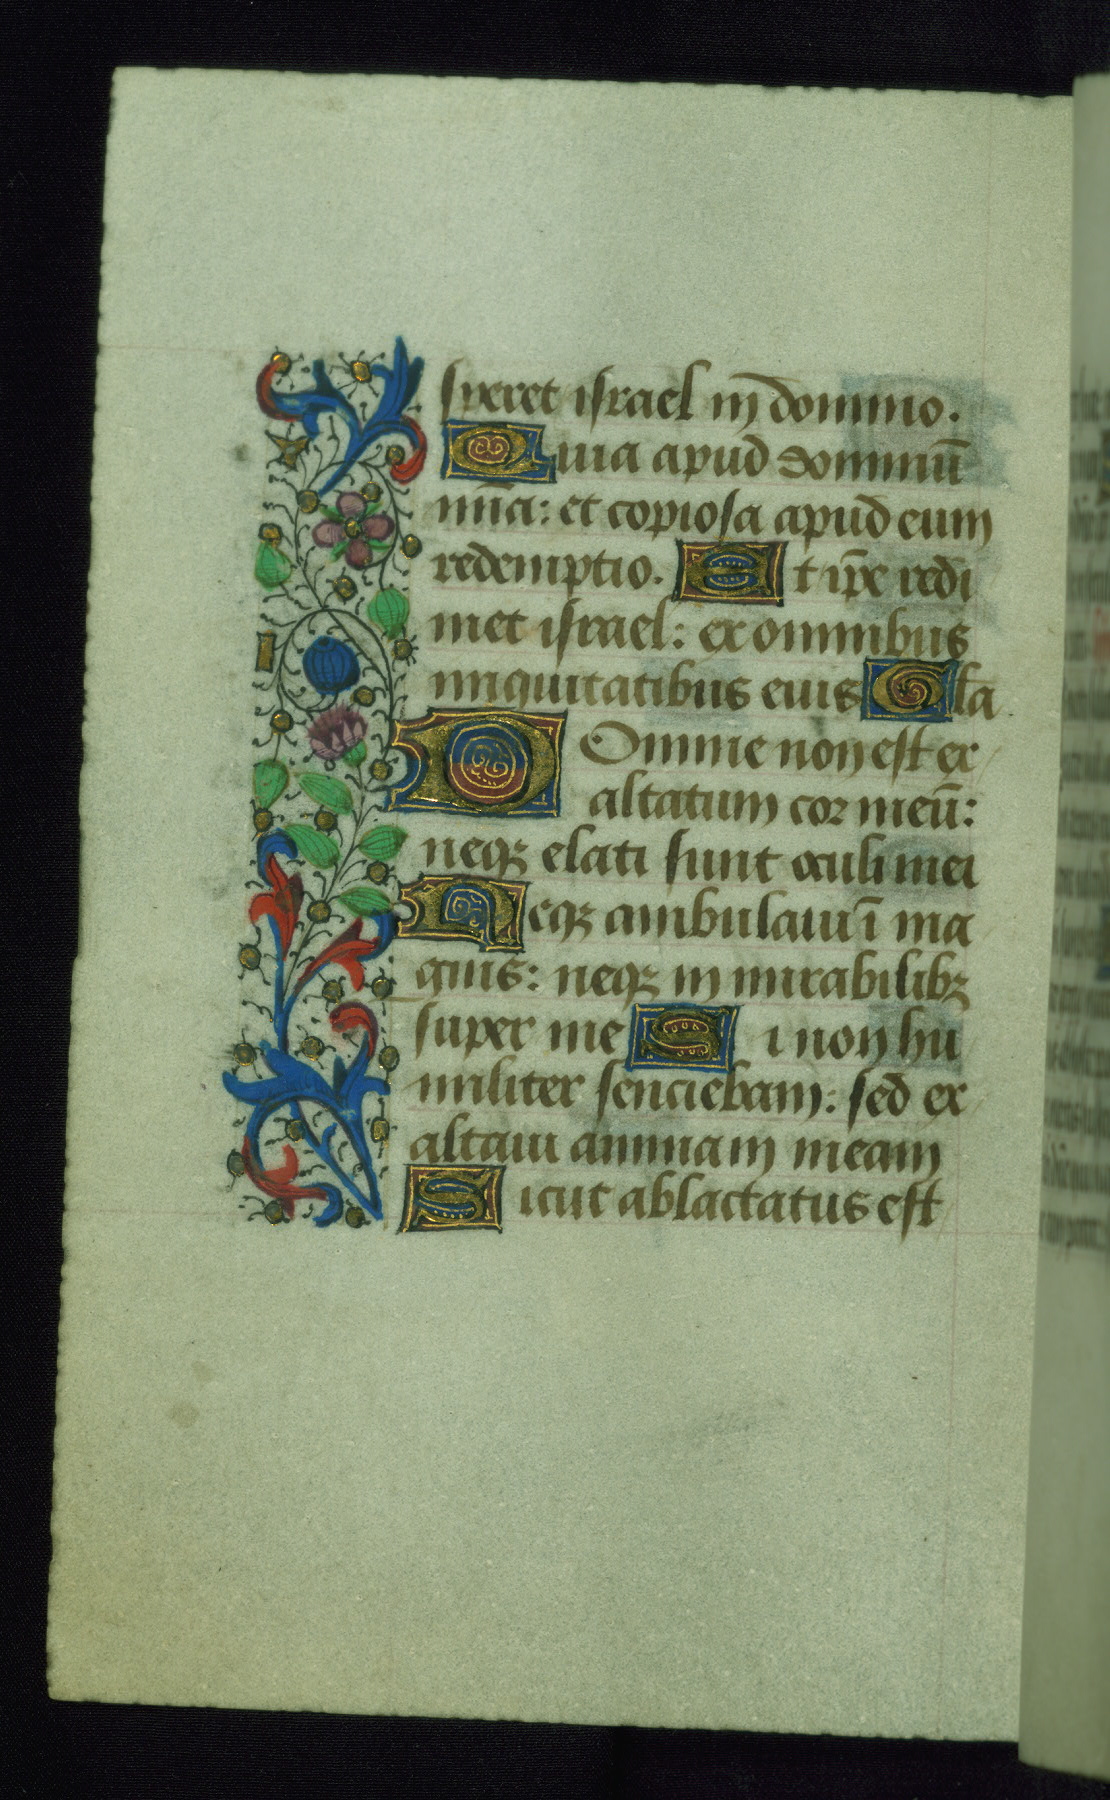 speret israel in domino.
Quia apud dominū
mīa: et copiosa apud eum
redemptio. Et ip̄e redi
met israel: ex omnibus
iniquitatibus eius Gl̄a
Domine non est ex
altatum cor meū:
neqꝫ elati sunt oculi mei
Neqꝫ ambulaui ī ma
gnis: neqꝫ in mirabilibꝫ
super me Si non hu
militer senciebam: sed ex
altaui animam meam
Sicut ablactatus est